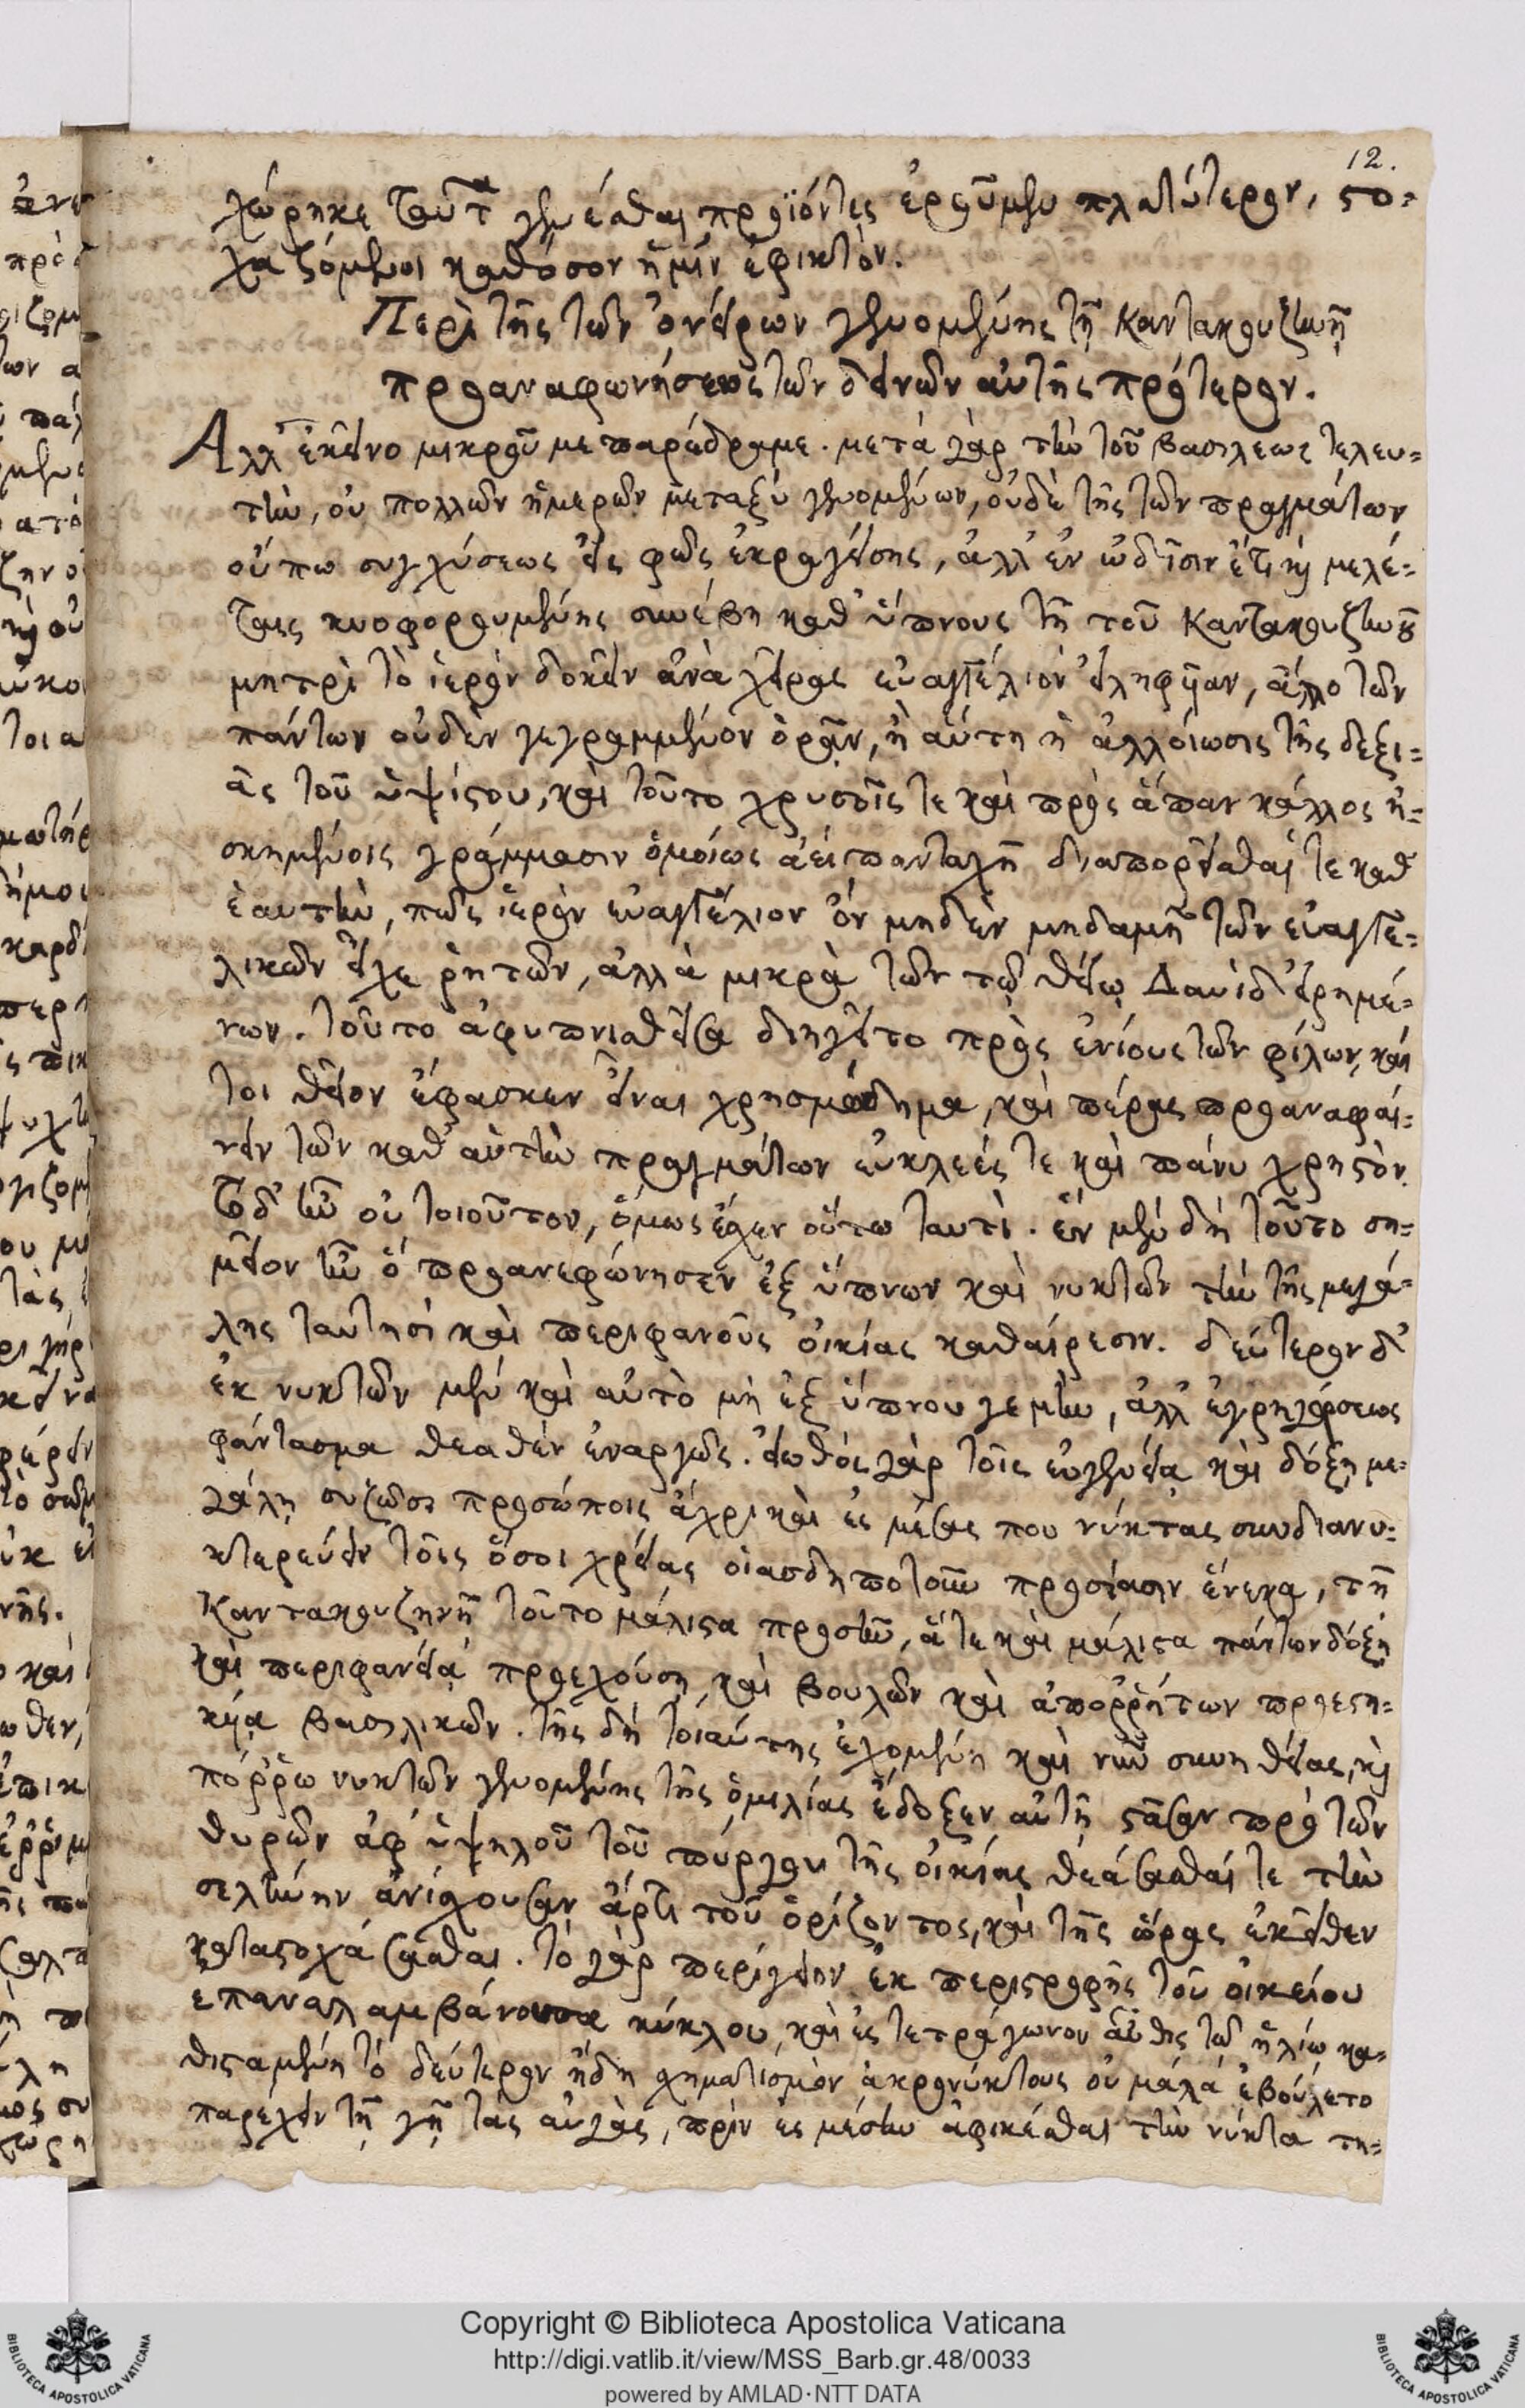 12.
χώρηκε ταῦτα γενέσθαι προϊόντες ἐροῦμεν πλατύτερον, στο-
χαζόμενοι καθόσον ἡμῖν ἐφικτὸν.
Περὶ τῆς τῶν ὀνείρων γενομένης τῇ Καντακουζηνῇ
προαναφωνήσεως τῶν δεινῶν αὐτῆς πρότερον.
Ἀλλ' ἐκεῖνο μικροῦ με παρέδραμε. μετὰ γὰρ τὴν τοῦ βασιλεως τελευ-
τὴν, οὐ πολλῶν ἡμερῶν μεταξὺ γενομένων, οὐδὲ τῆς τῶν πραγμάτων
οὔπω συγχύσεως εἰς φῶς ἐκραγείσης, ἀλλ' ἐν ὠδῖσιν ἔτι καὶ μελέ-
ταις κυοφορουμένης συνέβη καθ' ὕπνους τῇ τοῦ Καντακουζηνοῦ
μητρὶ τὸ ἱερὸν δοκεῖν ἀνὰ χεῖρας εὐαγγέλιον εἰληφυῖαν, ἄλλο τῶν
πάντων οὐδὲν γεγραμμένον ὁρᾷν, ἢ αὕτη ἡ ἀλλοίωσις τῆς δεξι-
ᾶς τοῦ ὑψίστου, καὶ τοῦτο χρυσοῖς τε καὶ πρὸς ἅπαν κάλλος ἠ-
σκημένοις γράμμασιν ὁμοίως ἀεὶ πανταχῆ διαπορεῖσθαί τε καθ'
ἑαυτὴν, πῶς ἱερὸν εὐαγγέλιον ὂν μηδὲν μηδαμῆ τῶν εὐαγγε-
λικῶν εἶχε ῥητῶν, ἀλλὰ μικρὰ τῶν τῷ θείῳ Δαυὶδ εἰρημέ-
νων. τοῦτο ἀφυπνισθεῖσα διηγεῖτο πρὸς ἐνίους τῶν φίλων, καί
τοι θεῖον ἔφασκεν εἶναι χρησμώδημα, καὶ πέρας προαναφαί-
νειν τῶν καθ' αὑτὴν πραγμάτων εὐκλεές τε καὶ πάνυ χρηστὸν.
τὸ δ' ἦν οὐ τοιοῦτον, ὅμως ἔχεν οὕτω ταυτὶ. ἓν μὲν δὴ τοῦτο ση-
μεῖον ἦν ὃ προανεφώνησεν ἐξ ὕπνων καὶ νυκτῶν τὴν τῆς μεγά-
λης ταυτησὶ καὶ περιφανοῦς οἰκίας καθαίρεσιν. δεύτερον δ'
ἐκ νυκτῶν μὲν καὶ αὐτὸ μὴ ἐξ ὕπνου γε μὴν, ἀλλ' ἐγρηγόρσεως
φάντασμα θεαθὲν ἐναργῶς. εἰωθὸς γὰρ τοῖς εὐγενείᾳ καὶ δόξῃ με-
γάλῃ συζῶσι προσώποις ἄχρι καὶ ἐς μέσας που νύκτας συνδιανυ-
κτερεύειν τοῖς ὅσοι χρείας οἱασδηποτοῦν προσίασιν ἕνεκα, τῇ
Καντακουζηνῇ τοῦτο μάλιστα προσῆν, ἅτε καὶ μάλιστα πάντων δόξῃ
καὶ περιφανείᾳ προεχούσῃ καὶ βουλῶν καὶ ἀποῤῥήτων προεστη-
κυίᾳ βασιλικῶν. τῆς δὴ τοιαύτης ἐχομένῃ καὶ νῦν συνηθείας, καὶ
πόῤῥω νυκτῶν γενομένης τῆς ὁμιλίας ἔδοξεν αὐτῇ στᾶσαν πρὸ τῶν
θυρῶν ἀφ' ὑψηλοῦ τοῦ πύργου τῆς οἰκίας θεάσασθαί τε τὴν
σελήνην ἀνίσχουσαν ἄρτι τοῦ ὁρίζοντος, καὶ τῆς ὥρας ἐκεῖθεν
καταστοχάσασθαι. τὸ γὰρ περίγειον ἐκ περιστροφῆς τοῦ οἰκείου
επαναλαμβάνουσα κύκλου, καὶ ἐς τετράγωνον αὖθις τῷ ἡλίῳ κα-
θισταμένη τὸ δεύτερον ἤδη σχηματισμὸν ἀκρονύκτους οὐ μάλα ἐβούλετο
παρέχειν τῇ γῇ τὰς αὐγὰς, πρὶν ἐς μέσην ἀφικέσθαι τὴν νύκτα τη-
Copyright © Biblioteca Apostolica Vaticana
http://digi.vatlib.it/view/MSS_Barb.gr.48/0033
powered by AMLAD·NTT DATA
BIBLIOTECA APOSTOLICA VATICANA
BIBLIOTECA APOSTOLICA VATICANA